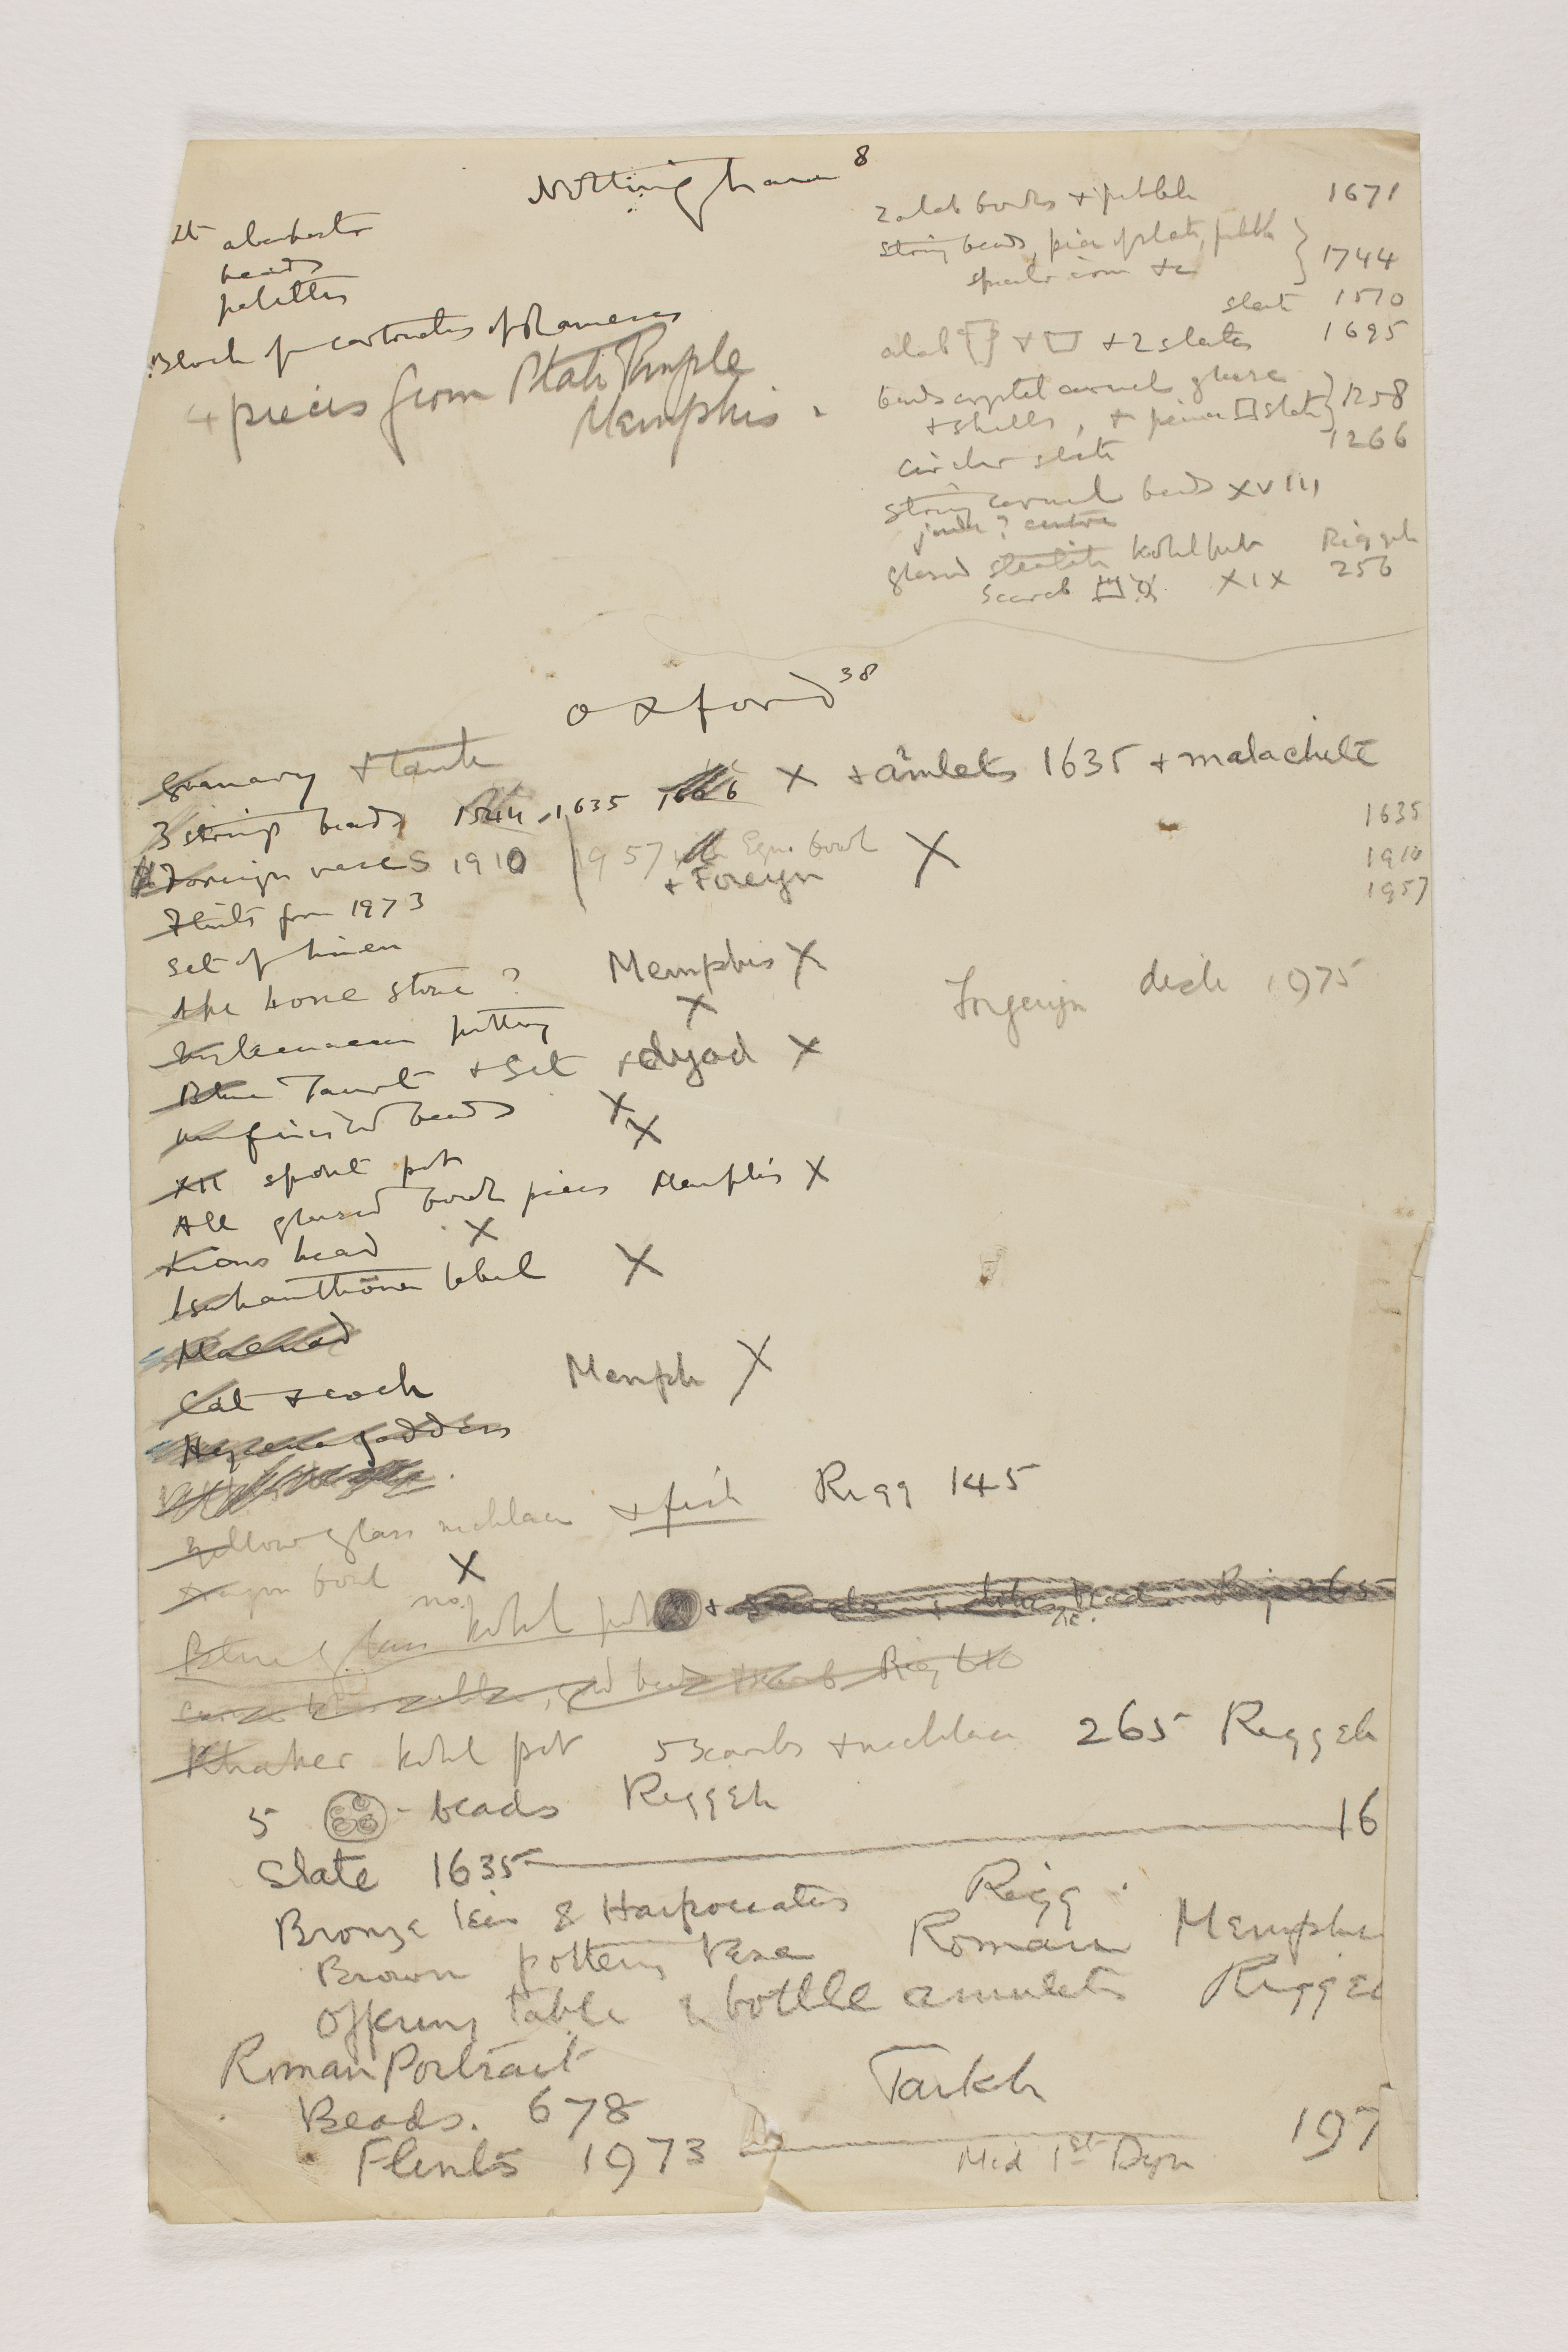 Nottingham 8
alabaster
beads
palettes
Block of cartouches of Rameses
4 pieces from Ptah Temple
Memphis
2 alab bowls + pebble 1671
string beads, piece of slate, pebble
specular iron &c } 1744
slate 1570
alab + + 2 slates 1695
beads crystal carnel glaze
+ shells, + piece slate } 1258
circular slate 1266
string carnel beads XVIII
jade? centre
glazed steatite kohl pot Riqqeh
scarab XIX 256
Oxford 38
Granary + tank
3 strings beads 1544, 1635 1666 X + amlets 1635 + malachite
Foreign vases 1910 1957 Egn. bowl X
+ Foreign
1635
1910
1957
Flints from 1973
Set of linen
Ape bone stone? Memphis X
Foreign dish 1975
pottery X
Blue Taurt + Set + dyad X
unfinished beads X
XII spout pot X
All glazed bowl pieces Memphis X
Lions head X
label X
Maenad
Cat + cock Memph X
goddess
Yellow glass necklace + fish Rigg 145
bowl X
Blue glass kohl pot + Rig 265
Khaker kohl pot 5 scarabs + necklace 265 Riggeh
5 - beads Riggeh
Slate 1635 16
Bronze Isis & Harpocrates Rigg
Brown pottery Vase Roman Memphi
Offering table & bottle amulets Rigge
Roman Portrait
Beads. 678 Tarkh
Flints 1973 Mid 1st Dyn 197